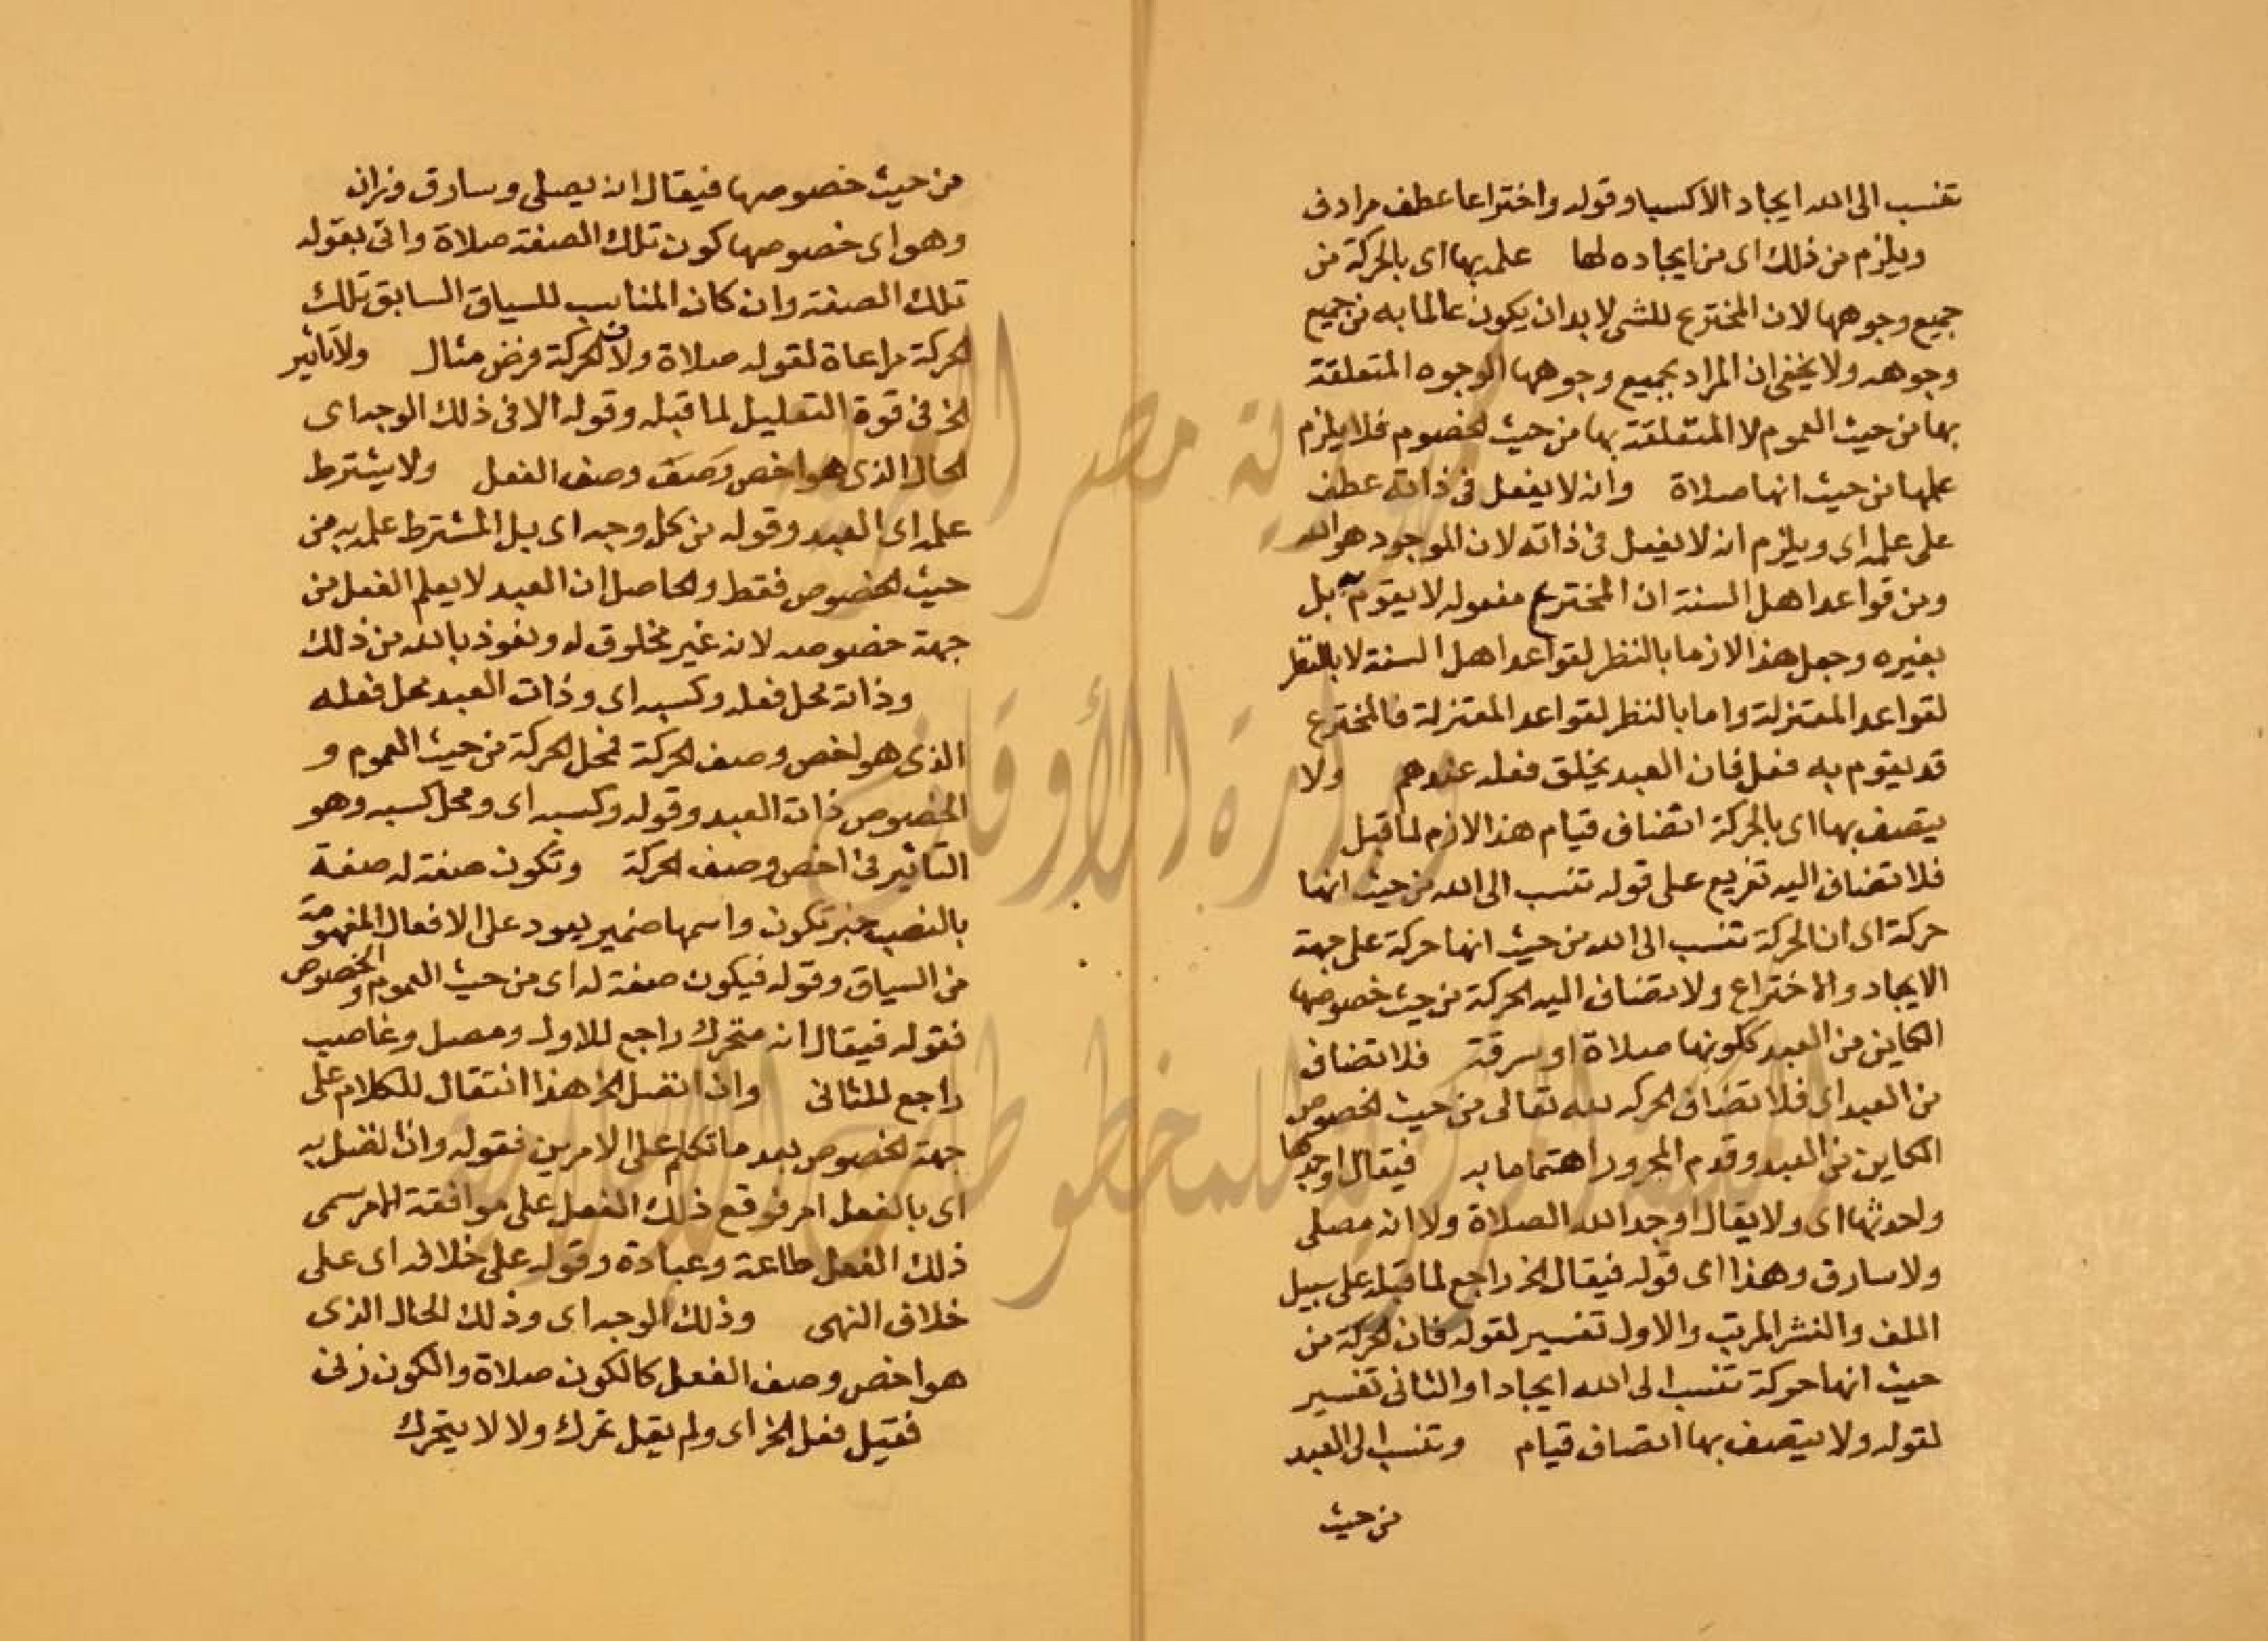 تنسب الى الله ايجادا لا كسبا وقوله واختراعا عطف مرادف
ويلزم من ذلك اى من ايجاده لها علمه بها اى بالحركة من
جميع وجوهها لان المخترع للشى لا بد ان يكون عالما به من جميع
وجوهه ولا يخفى ان المراد بجميع وجوهها الوجوه المتعلقة
بها من حيث العموم لا المتعلقة بها من حيث الخصوم فلا يلزم
علمها من حيث انها صلاة وانه لا يفعل فى ذاته عطف
على علمه اى ويلزم انه لا يفعل فى ذاته لان الموجود هو الله
ومن قواعد اهل السنة ان المخترع مفعوله لا يقوم به بل
بغيره وجعل هذا لازما بالنظر لقواعد اهل السنة لا بالنظر
لقواعد المعتزلة واما بالنظر لقواعد المعتزلة فالمخترع
قد يقوم به فعل فان العبد يخلق فعله عندهم ولا
يتصف بها اى بالحركة اتصاف قيام هذا لازم لما قبل
فلا تضاف اليه تفريع على قوله تنسب الى الله من حيث انها
حركة اى ان الحركة تنسب الى الله من حيث انها حركة على جهة
الايجاد والاختراع ولا تضاف اليه الحركة من حيث خصوصها
الكاين من العبد ككونها صلاة او سرقة فلا تضاف
من العبد اى فلا تضاف الحركه لله تعالى من حيث الخصوص
الكاين من العبد وقدم المجرور اهتماما به فيقال اوجدها
واحدثها اى ولا يقال اوجد الله الصلاة ولا انه مصلى
ولا سارق وهذا اى قوله فيقال الخ راجع لما قبله على سبيل
اللف والنشر المرتب والاول تفسير لقوله فان الحركة من
حيث انها حركة تنسب الى الله ايجادا والثانى تفسير
لقوله ولا يتصف بها اتصاف قيام وتنسب الى العبد
من حيث
من حيث خصوصها فيقال انه يصلى وسارق وزان
وهو اى خصوصها كون تلك الصفة صلاة واتى بقوله
تلك الصفة وان كان المناسب للسياق السابق تلك
الحركة مراعاة لقوله صلاة ولان الحركة فرض مثال ولا تاثير
الخ فى قوة التعليل لما قبله وقوله الا فى ذلك الوجه اى
الحال الذى هو اخص وصف وصف الفعل ولا يشترط
علمه اى العبد وقوله من كل وجه اى بل المشترط علمه به من
حيث الخصوص فقط والحاصل ان العبد لا يعلم الفعل من
جهة خصوصه لانه غير مخلوق له ونعوذ بالله من ذلك
وذاته محل فعله وكسبه اى وذات العبد محل فعله
الذى هو اخص وصف الحركة فمحل الحركة من حيث العموم و
الخصوص ذات العبد وقوله وكسبه اى ومحل كسبه وهو
التاثير فى اخص وصف الحركة وتكون صفة له صفة
بالنصب خبر تكون واسمها ضمير يعود على الافعال المفهومة
من السياق وقوله فيكون صفة له اى من حيث العموم والخصوص
فقوله فيقال انه متحرك راجع للاول ومصل وغاصب
راجع للثانى وان اتصل الخ هذا انتقال للكلام على
جهة الخصوص بعد ما تكلم على الامرين فقوله وان اتصل به
اى بالفعل امر فوقع ذلك الفعل على موافقة الامر سمى
ذلك الفعل طاعة وعبادة وقوله على خلافه اى على
خلاف النهى وذلك الوجه اى وذلك الحال الذى
هو اخص وصف الفعل كالكون صلاة والكون زنى
فقيل فعل الخ اى ولم يقل تحرك ولا لا يتحرك